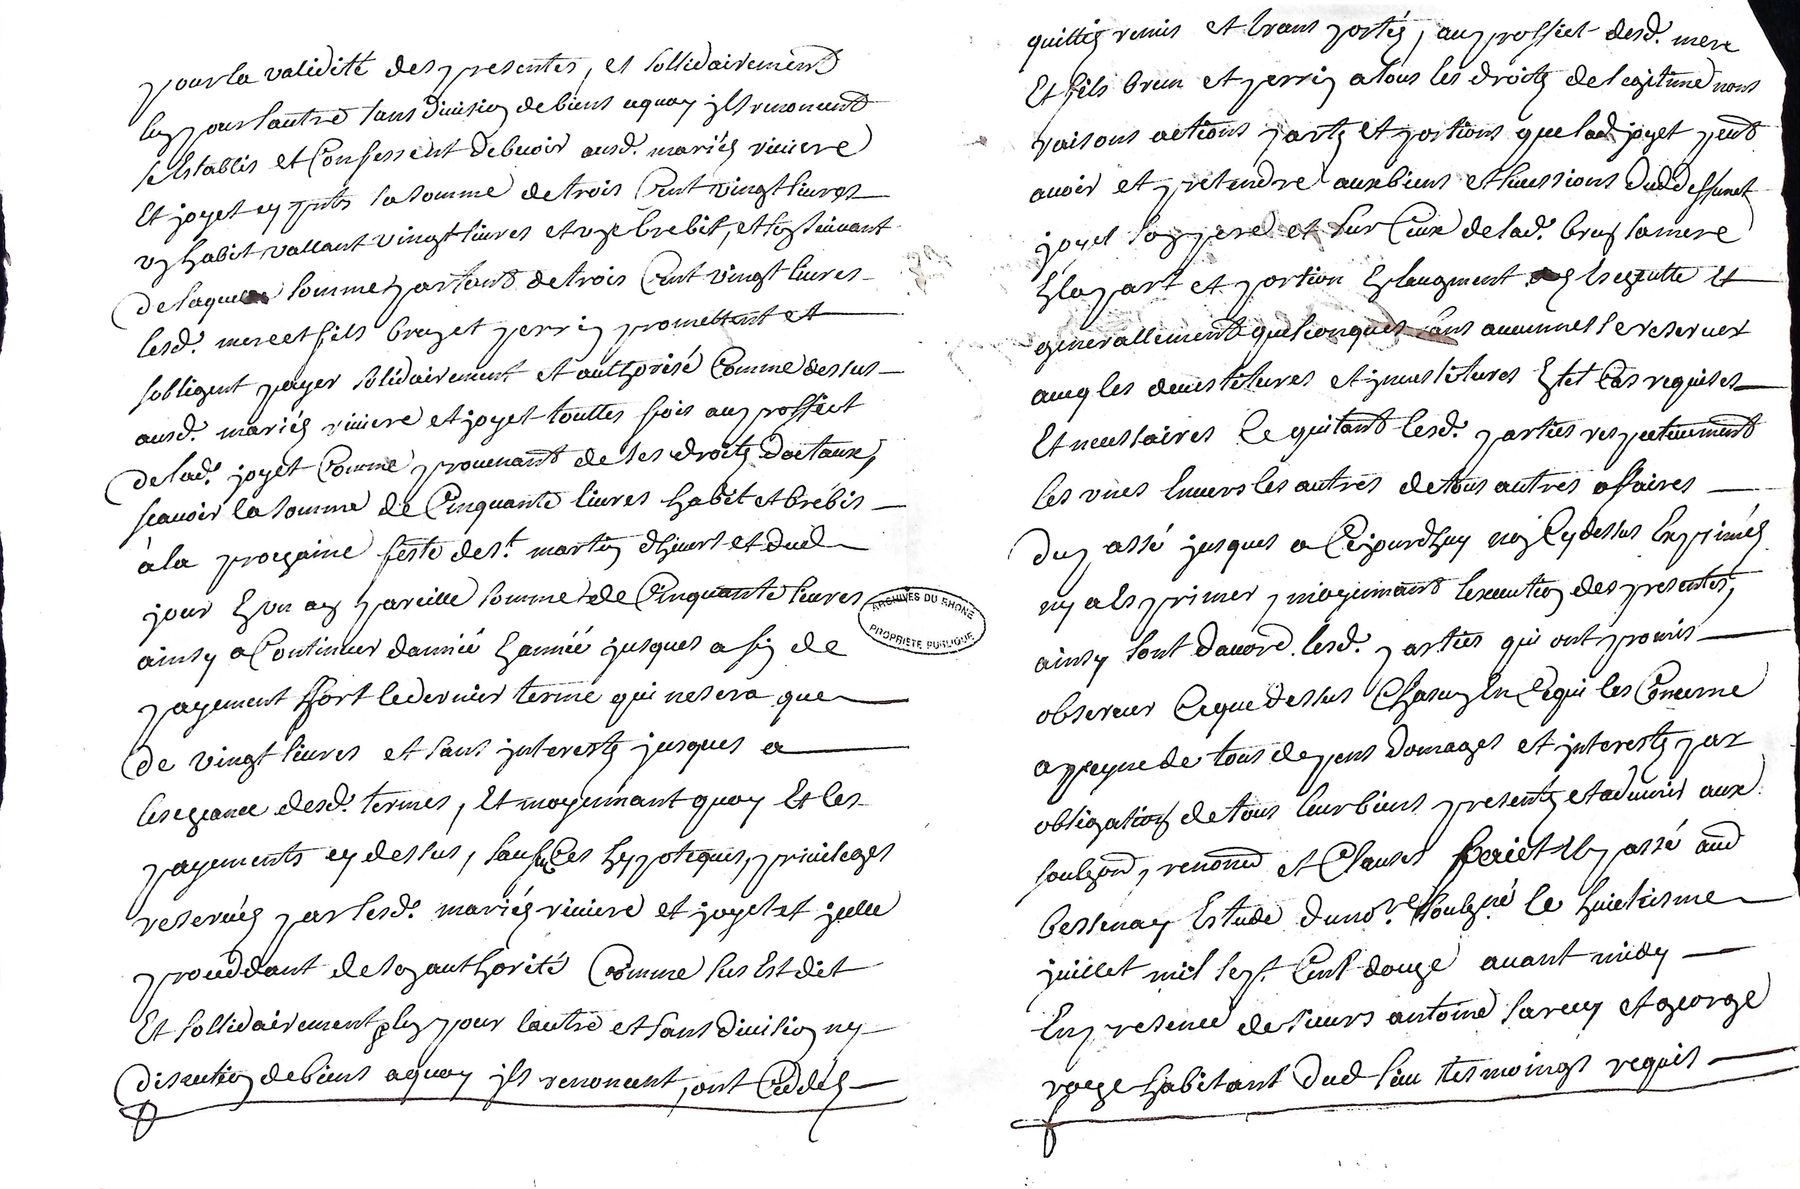 pour la validité des presentes, et sollidairement
lun pour lautre sans division de biens a quoy ils renoncent
se establis et Confessent debvoir ausd. mariés riviere
Et joyet en puts la somme de trois Cent vingt livres
un habit vallant vingt livres et une brebit, et
de laquelle somme partant de trois Cent vingt livres
lesd. mere et fils brun et perrin promettent et
sobligent payer solidairement et authorisé Comme dessus
ausd. mariés riviere et joyet touttes fois au proffict
de lad. joyet Comme provenant de ses droits doctaux,
scavoir la somme de Cinquante livres habit et brebis
à la prochaine feste de st. martin dhivert et dud
jour En un an pareille somme de Cinquante livres
ainsy a Continuer dannée En année jusques a fin de
payement fort le dernier terme qui ne sera que
de vingt livres et sans interests jusques a
lescheance desd. termes, Et moyennant quoy Et les
payements cy dessus, sauf les hypoteques, privileges
reservés par lesd. mariés riviere et joyet et jcelle
proceddant de son authorité Comme sus Est dit
Et sollidairement lun pour lautre et sans division ny
discution de biens a quoy ils renoncent, ont Ceddés
quittés remis et transportés, au proffict desd. mere
Et fils brun et perrin a tous les droits de legitime noms
raisons actions parts et portions que lad joyet peut
avoir et pretendre aux biens et sucessions dud deffunct
joyet son pere et sur Ceux de lad. brun sa mere
En la part et portion En laugment et
generallement quelconques sans aucunnes se reserver
avecq les devestitures et jnvestitures En tel Cas requises
Et necessaires se quitant lesd. parties respectivement
les unes Envers les autres de tous autres affaires
du passé jusques a Cejourdhuy non Cy dessus Exprimés
ny a Exprimer, moyennant lexecution des presentes,
ainsy sont dacord lesd. parties qui ont promis
observer Ce que dessus Chascun En Ce qui les Concerne
a peyne de tous depens domages et interests par
obligation de tous leur biens presents et advenir aux
soubzond, renond et Clauses faict et passé aud
bessenay Estude du nore. soubzné le huictiesme
juillet mil sept Cent douze avant midy
En presence de sieurs antoine sarcey et george
roege habitant dud lieu tesmoings requis
ARCHIVES DU RHONE
PROPRIETE PUBLIQUE